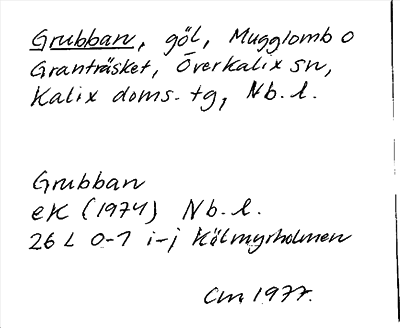 Grubban, göl, Mugglomb o
Granträsket, Överkalix sn,
Kalix doms. tg, Nb. l.
Grubban
ek (1974) Nb. l.
26 L 0-1 i-j Kölmyrholmen
Cm 1977.